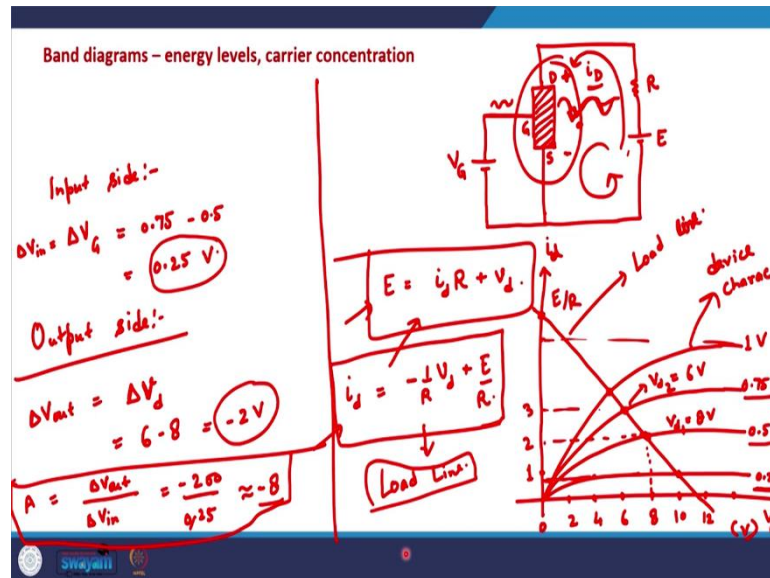 Band diagrams – energy levels, carrier concentration
Input side:-
ΔVin = ΔV_G = 0.75 - 0.5
= 0.25 V.
Output side:-
ΔVout = ΔV_d
= 6 - 8 = -2 V
A = ΔVout / ΔVin = -2.00 / 0.25 ≈ -8
E = i_d R + V_d.
i_d = -1/R V_d + E/R.
Load Line.
D +
i_D
R
G
S -
E
V_G
i_d
E/R
Load line.
device
charac
1 V
V_d2 = 6 V
0.75
3
V_d1 = 8 V
2
0.5
1
0 2 4 6 8 10 12
(V)
swayam